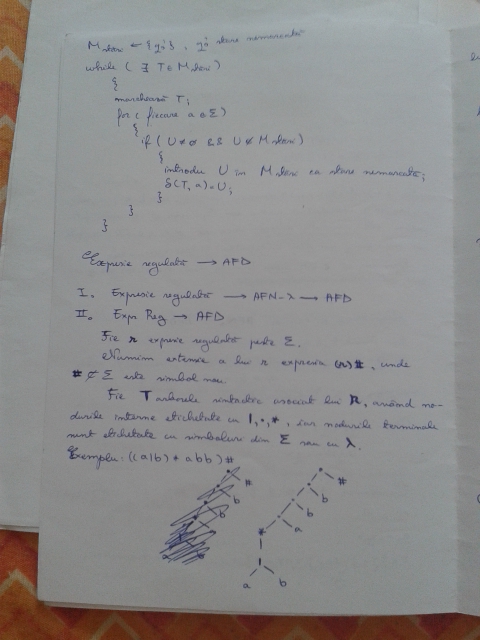 M stări ← {q₀'}, q₀' stare nemarcată
while ( ∃ T ∈ M stări )
{
marchează T;
for ( fiecare a ∈ Σ )
{
if ( U ≠ ∅ && U ∉ M stări )
{
introdu U în M stări ca stare nemarcată;
δ(T, a) = U;
}
}
}
Expresie regulată → AFD
I. Expresie regulată → AFN-λ → AFD
II. Expr Reg → AFD
Fie r expresie regulată peste Σ.
Numim extensie a lui r expresia (r)#, unde
# ∉ Σ este simbol nou.
Fie T arborele sintactic asociat lui R, având no-
durile interne etichetate cu |, ·, *, iar nodurile terminale
sunt etichetate cu simboluri din Σ sau cu λ.
Exemplu: ((a|b) * abb) #
# #
b b
b b
* a
|
a b